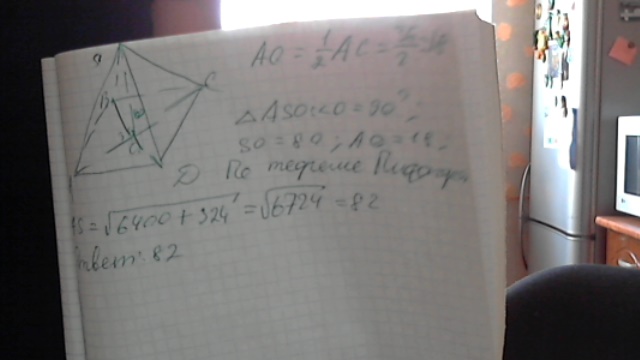 S
B
C
O
D
AO = 1/2 AC = 36/2 = 18
△ASO: ∠O = 90°;
SO = 80; AO = 18;
По теореме Пифагора
AS = √6400 + 324 = √6724 = 82
Ответ: 82